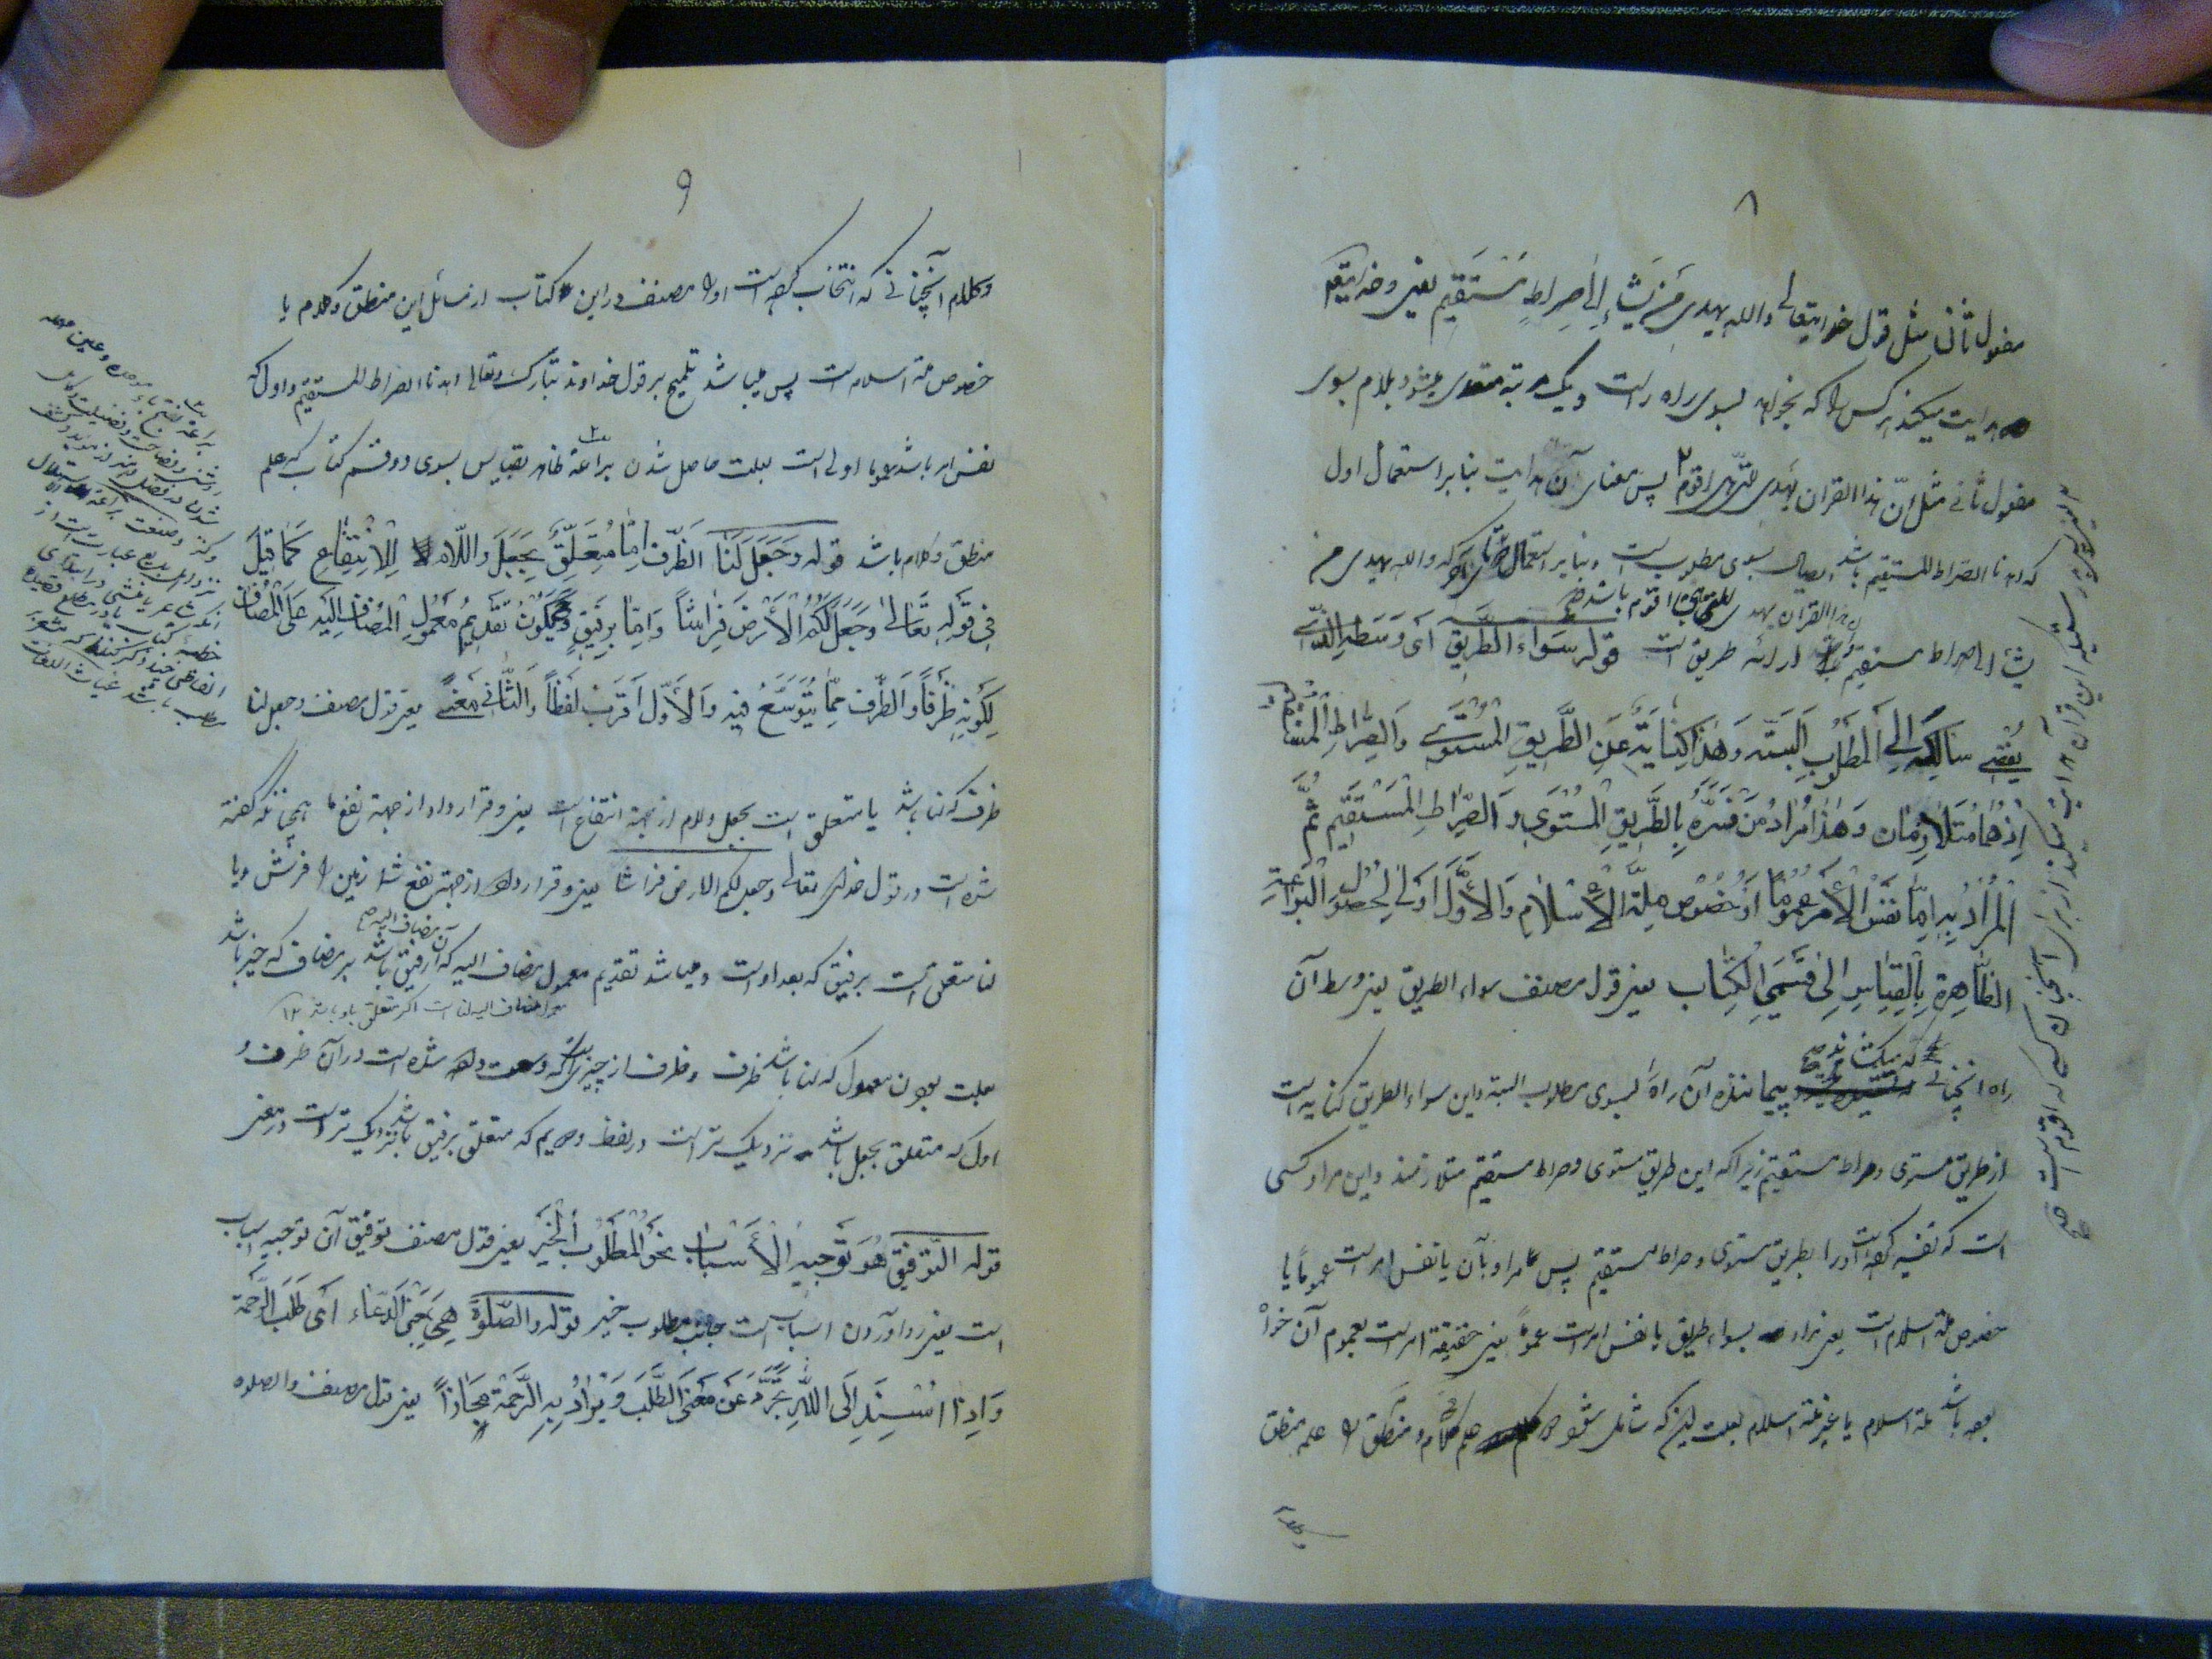 ۸
مفعول ثانی مثل قول خدایتعالی والله یهدی من یشاء الی صراط مستقیم یعنی و خدایتعالی
هدایت میکند هر کس را که بخواهد بسوی راه راست و یک مرتبه متعدی میشود بلام بسوی
مفعول ثانی مثل انّ هذا القران یهدی للتی هی اقوم ۲ پس معنای آن هدایت بنا بر استعمال اول
که اهدنا الصراط المستقیم باشد ایصال بسوی مطلوب است و بنابر استعمال که والله یهدی من
ان هذا القران یهدی للتی هی اقوم باشد
یشاء الی صراط مستقیم ارائه طریق است قوله سَواءَ الطَّریقِ اَی وَسَطِهِ الَّذی
یُفْضی سالِکَهُ اِلَی الْمَطْلُوبِ اَلْبَتَّه وَهٰذا کِنایَةٌ عَنِ الطَّریقِ الْمُسْتَوی وَالصِّراطِ الْمُسْتَقیم
اِذْهُما مُتَلازِمان وَهٰذا مُرادُ مَنْ فَسَّرَهُ بِالطَّریقِ الْمُسْتَوی وَ الصِّراطِ الْمُسْتَقیم ثُمَّ
الْمُرادُ بِهِ اِمّا نَفْسُ الْاَمْرِ عُمُوماً اَوْ خُصُوصِ مِلَّةِ الْاِسْلامِ وَالْاَوَّلُ اَوْلیٰ لِحُصُولِ الْبَراعَةِ
الظّاهِرَةِ بِالْقِیاسِ اِلیٰ قِسْمَیِ الْکِتاب یعنی قول مصنف سواء الطریق یعنی وسط آن
راه انچنانی که میکشاند پیماینده آن راه را بسوی مطلوب البتة و این سواء الطریق کنایه است
از طریق مستوی و صراط مستقیم زیرا که این طریق مستوی و صراط مستقیم متلازمند و این مراد کسی
است که تفسیر کرده است او را بطریق مستوی و صراط مستقیم پس مراد بآن یا نفس امر است عموماً یا
خصوص ملة اسلام است یعنی مراد بسواء طریق یا نفس امر است عموماً یعنی حقیقة امر است بعموم آن خواه
بوده باشد ملة اسلام یا غیر ملة اسلام بعلت اینکه شامل شود علم کلام و منطق را علم منطق
۲ یعنی بدرستیکه این قرآن هدایت میکند از برای آنچنان کسی که اقوم است
۹
وکلام آنچنانی که انتخاب کرده است او را مصنف در این کتاب از مسائل این منطق و کلام یا
خصوص ملة اسلام است پس میباشد تلمیح بر قول خداوند تبارک وتعالی اهدنا الصراط المستقیم و اول که
نفس امر باشد عموما اولی است بعلت حاصل شدن براعة ظاهر بقیاس بسوی دو قسم کتاب که علم
منطق و کلام باشد قوله وَجَعَلَ لَنا الظَّرْف اِمّا مُتَعَلِّقٌ بِجَعَلَ وَاللّام لِلْاِنْتِفاعِ کَما قیلَ
فی قَوْلِهِ تَعالیٰ وَجَعَلَ لَکُمُ الْاَرْضَ فِراشاً وَ اِمّا بِرَفیقٍ وَیَکُونُ تَقْدیمُ مَعْمُولِ الْمُضافِ اِلَیْهِ عَلَی الْمُضافِ
لِکَوْنِهِ ظَرْفاً وَالظَّرْف مِمّا یُتَوَسَّعُ فیهِ وَالْاَوَّل اَقْرَبُ لَفْظاً وَالثّانی مَعْنیً یعنی قول مصنف وجعل لنا
ظرف که لنا باشد یا متعلق است بجعل و لام از جهة انتفاع است یعنی و قرار داد از جهة نفع ما همچنانکه گفته
شده است در قول خدای تعالی وجعل لکم الارض فراشا یعنی و قرار داد از جهة نفع شما زمین را فرش و یا
لنا متعلق است برفیق که بعد او است و میباشد تقدیم معمول مضاف الیه که آن رفیق باشد بر مضاف که خیر باشد
بعلت بودن معمول که لنا باشد ظرف و ظرف از چیزیست که وسعت داده شده است در آن ظرف و
اول که متعلق بجعل باشد نزدیک تر است در لفظ و دویم که متعلق برفیق باشد نزدیک تر است در معنی
قوله التَّوْفیق هُوَ تَوْجیهُ الْاَسْبابِ نَحْوَ الْمَطْلُوبِ الْخَیْر یعنی قول مصنف توفیق آن توجیه اسباب
است یعنی رو آوردن اسباب است جانب مطلوب خیر قوله والصَّلوٰةُ هِیَ بِمَعْنَی الدُّعاءِ اَی طَلَبَ الرَّحْمَة
وَ اِذا اُسْنِدَ اِلَی اللهِ تَجَرَّدَ عَنْ مَعْنَی الطَّلَب وَ یُرادُ بِهِ الرَّحْمَة مَجازاً یعنی قول مصنف والصلوه